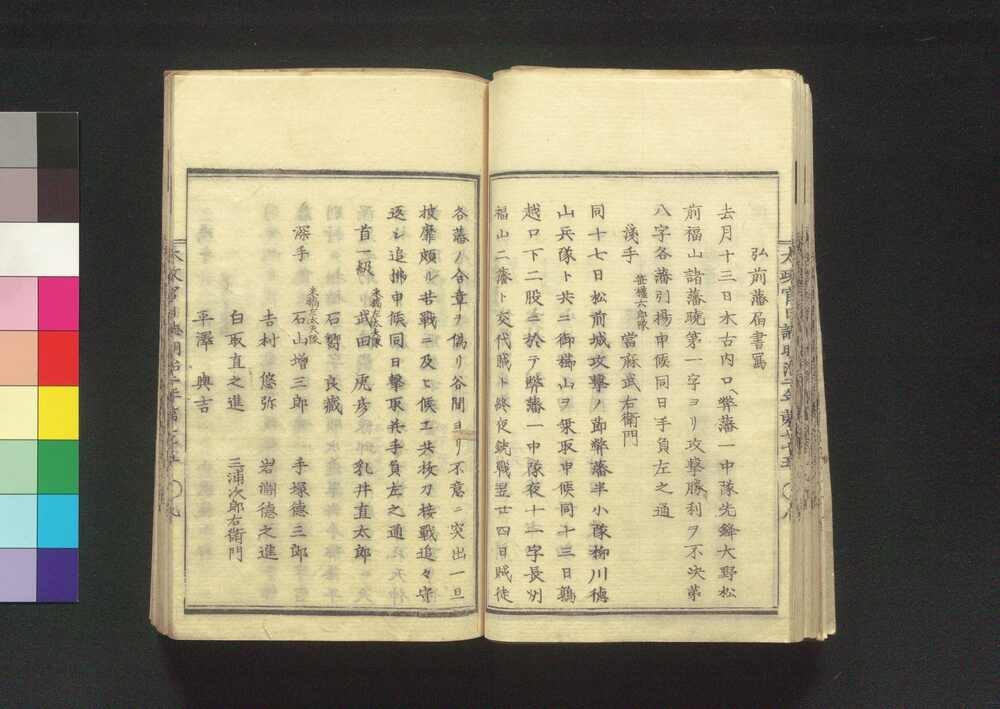 弘前藩届書寫
去月十三日木古内口ヘ弊藩一中隊先鋒大野松
前福山諸藩曉第一字ヨリ攻撃勝利ヲ不決第
八字各藩引揚申候同日手負左之通
淺手 笹權六郎隊 當麻武右衛門
同十七日松前城攻撃ノ節弊藩半小隊柳川徳
山兵隊ト共ニ御櫛山ヲ乗取申候同十三日鶉
越口下二股ニ於テ弊藩一中隊夜十一字長州
福山二藩ト交代賊ト終夜銃戰翌廿四日賊徒
各藩ノ合章ヲ偽リ谷間ヨリ不意ニ突出一旦
披靡頗ル苦戰ニ及ヒ候エ共抜刀接戰追々守
返シ追拂申候同日撃取共手負左之通
首一級 木藤左太夫隊 武田虎彦 乳井直太郎
石 良藏
深手 木藤左太夫隊 石山増三郎 手塚徳三郎
吉村悠弥 岩淵徳之進
白取直之進 三浦次郎右衛門
平澤與吉
太政官日誌明治二年第七十五 〇九